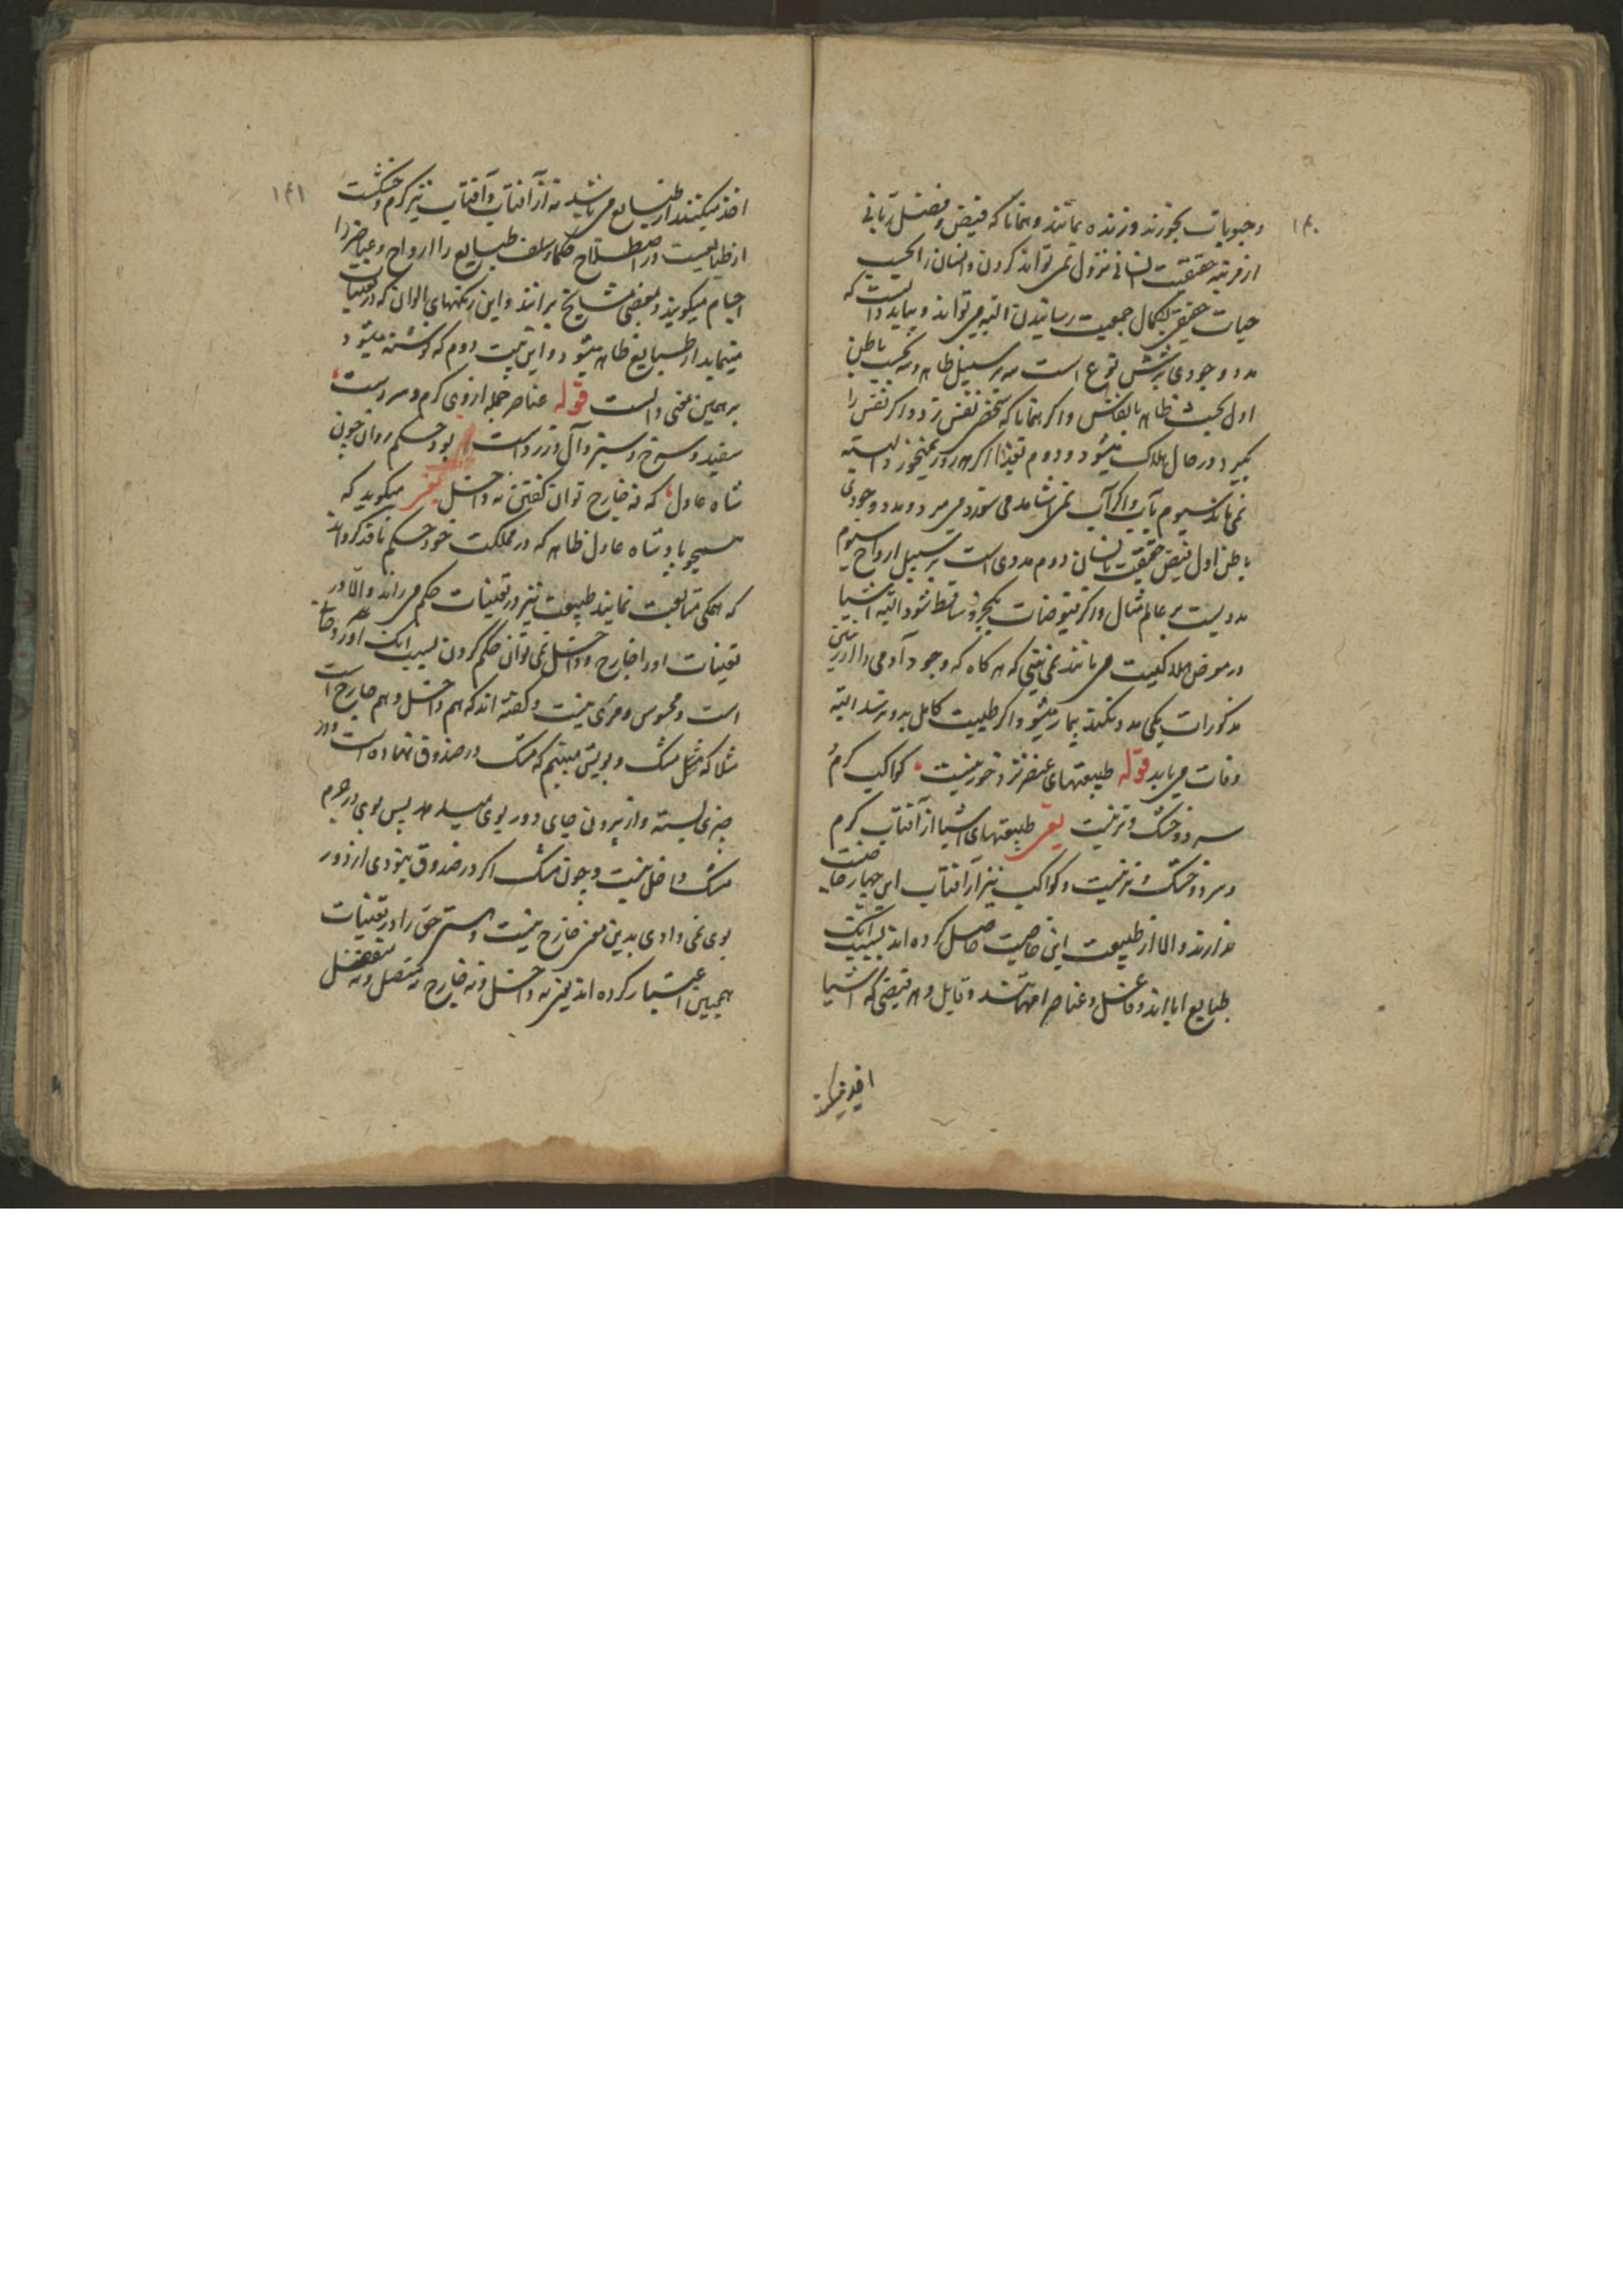 ۱۴۰
و حبوبات بخورند و زنده بمانند و همانا که فیض و فضل ربانی
از مرتبه حقیقت انسانی نزول نمی تواند کردن و انسان را بحسب
حیات حقیقی بکمال جمعیت رسانیدن البته می تواند و بباید دانست که
مدد وجودی بر شش نوع است سه بر سبیل ظاهر و سه بحسب باطن
اول بحسب ظاهر بانفاس و اگر همانا که شخص نفس نزد و اگر نفس را
بگیرد در حال هلاک میشود و دوم بغذا اگر هر روز نمیخورد البته
نمی ماند سیوم بآب و اگر آب نمی اشامد می سوزد می میرد و مدد وجودی
باطن اول فیض حقیقت انسان دوم مددی است بر سبیل ارواح سیوم
مددیست بر عالم مثال و اگر فیوضات یکجزو ساقط شود البته اشیا
در معرض هلاکیت می مانند نمی بینی که هر گاه که وجود آدمی را ازین
مذکورات یکی مدد نکند بیمار میشود و اگر طبیعت کامل بدو نرسد البته
وفات می یابد قوله طبیعتهای عنصر نزد خور نیست کواکب گرم
سرد و خشک و تر نیست یعنی طبیعتهای اشیا از آفتاب گرم
و سرد و خشک و تر نیست و کواکب نیز از آفتاب این چهار خاصیت
ندارند و الا از طبیعت این خاصیت حاصل کرده اند بسبب آنک
طبایع ابااند و فاعل و عناصر امهاتند و قابل و هر فیضی که اشیا
اخذ میکنند
۱۴۱
اخذ میکنند از طبایع می باشد نه از آفتاب و آفتاب نیز گرم و خشکست
از طبایعست در اصطلاح حکماء سلف طبایع را ارواح و عناصر را
اجسام میگویند و بعضی مشایخ برانند و این رنگهای الوان که در تعینات
مینماید از طبایع ظاهر میشود و این بیت دوم که نوشته میشود
بر همین معنی دالست قوله عناصر جمله از وی گرم و سردست
سفید و سرخ و سبز و آل و زردست بود حکم روان چون
شاه عادل که نه خارج توان گفتن نه داخل یعنی میگوید که
همچو پادشاه عادل ظاهر که در مملکت خود حکم نافذ گرداند
که همگی متابعت نمایند طبیعت نیز در تعینات حکم می راند و الا در
تعینات او را خارج و داخل نمی توان حکم کردن بسبب آنک او روحا
است و محسوس و مرئی نیست و گفته اند که هم داخل و هم خارج است
مثلا که مثل مشک و بویش میبینیم که مشک در صندوق نهاده است و در
چیزی بسته و از بیرون جای دور بوی میدهد پس بوی در جرم
مشک داخل نیست و چون مشک اگر در صندوق نبودی از دور
بوی نمی دادی بدین معنی خارج نیست و سر حق را در تعینات
همچنین اعتبار کرده اند یعنی نه داخل و نه خارج نه متصل و نه منفصل